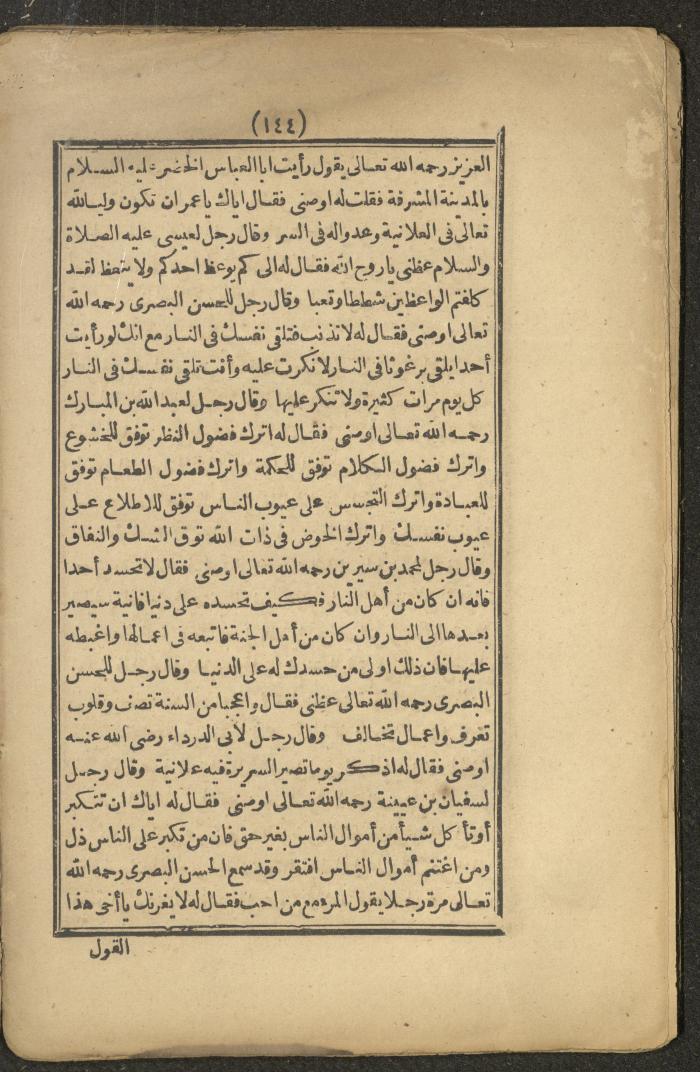 (١٤٤)
العزيز رحمه الله تعالى يقول رأيت ابا العباس الخضر عليه السلام
بالمدينة المشرفة فقلت له اوصنى فقال اياك يا عمر ان تكون وليا لله
تعالى فى العلانية وعدوا له فى السر وقال رجل لعيسى عليه الصلاة
والسلام عظنى يا روح الله فقال له الى كم يوعظ احدكم ولا يتعظ لقد
كلفتم الواعظين شططا وتعبا وقال رجل للحسن البصرى رحمه الله
تعالى اوصنى فقال له لا تذنب فتلقى نفسك فى النار مع انك لو رأيت
أحدا يلقى برغوثا فى النار لانكرت عليه وأنت تلقى نفسك فى النار
كل يوم مرات كثيرة ولا تنكر عليها وقال رجل لعبد الله بن المبارك
رحمه الله تعالى اوصنى فقال له اترك فضول النظر توفق للخشوع
واترك فضول الكلام توفق للحكمة واترك فضول الطعام توفق
للعبادة واترك التجسس على عيوب الناس توفق للاطلاع على
عيوب نفسك واترك الخوض فى ذات الله توق الشك والنفاق
وقال رجل لمحمد بن سيرين رحمه الله تعالى اوصنى فقال لا تحسد أحدا
فانه ان كان من أهل النار فكيف تحسده على دنيا فانية سيصير
بعدها الى النار وان كان من أهل الجنة فاتبعه فى اعمالها واغبطه
عليها فان ذلك اولى من حسدك له على الدنيا وقال رجل للحسن
البصرى رحمه الله تعالى عظنى فقال واعجبا من السنة تصف وقلوب
تعرف واعمال تخالف وقال رجل لأبى الدرداء رضى الله عنه
اوصنى فقال له اذكر يوما تصير السريرة فيه علانية وقال رجل
لسفيان بن عيينة رحمه الله تعالى اوصنى فقال له اياك ان تتكبر
أو تأكل شيأ من أموال الناس بغير حق فان من تكبر على الناس ذل
ومن اغتنم أموال الناس افتقر وقد سمع الحسن البصرى رحمه الله
تعالى مرة رجلا يقول المرء مع من احب فقال له لا يغرنك يا أخى هذا
القول